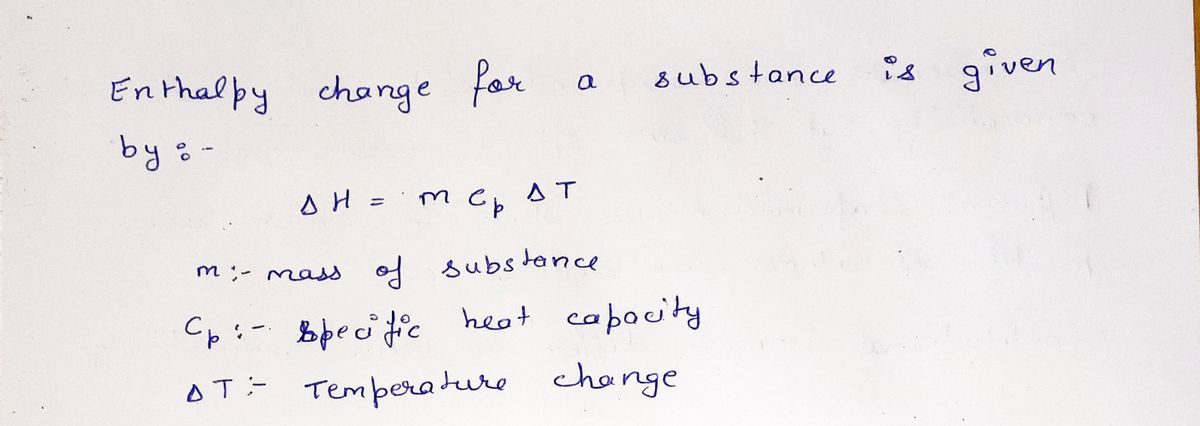 Enthalpy change for a substance is given
by :-
Δ H = m Cp Δ T
m :- mass of substance
Cp :- specific heat capacity
Δ T :- Temperature change